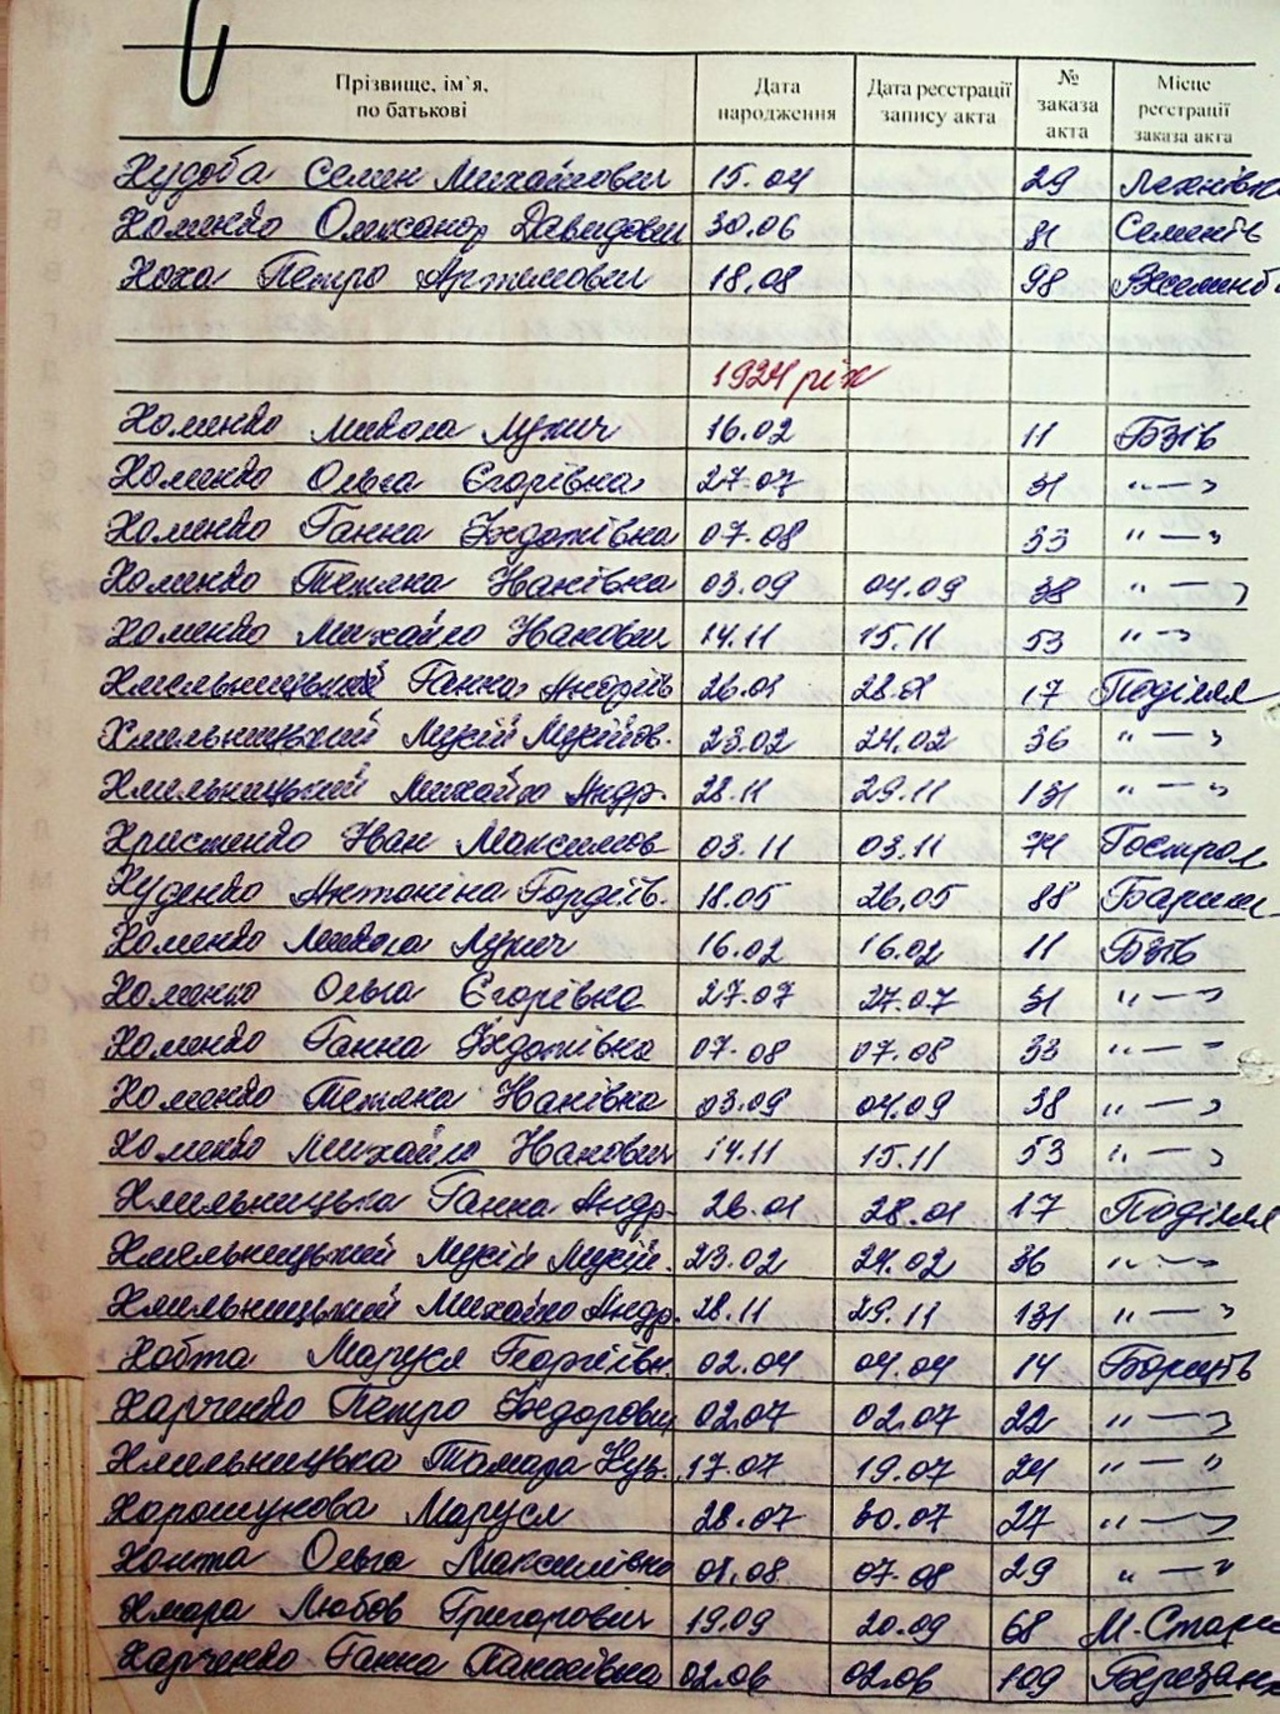 Прізвище, ім`я, по батькові Дата народження Дата реєстрації запису акта № заказа акта Місце реєстрації заказа акта
Худоба Семен Михайлович 15.04 29
Хоменко Олександр Давидович 30.06 81 Семенів
Хоха Петро Артемович 18.08 98
1924 рік
Хоменко Микола Лукич 16.02 11 Бзів
Хоменко Ольга Єгорівна 27.07 31 " — "
Хоменко Ганна Федотівна 07.08 33 " — "
Хоменко Тетяна Іванівна 03.09 04.09 38 " — "
Хоменко Михайло Іванович 14.11 15.11 53 " — "
Хмельницька Ганна Андріїв 26.01 28.01 17 Поділля
Хмельницький Мусій Мусійов. 23.02 24.02 36 " — "
Хмельницький Михайло Андр. 28.11 29.11 131 " — "
Христенко Іван Максимов 03.11 03.11 74 Гострол
Худенко Антоніна Гордіїв. 18.05 26.05 88 Бариш
Хоменко Микола Лукич 16.02 16.02 11 Бзів
Хоменко Ольга Єгорівна 27.07 27.07 31 " — "
Хоменко Ганна Федотівна 07.08 07.08 33 " — "
Хоменко Тетяна Іванівна 03.09 04.09 38 " — "
Хоменко Михайло Іванович 14.11 15.11 53 " — "
Хмельницька Ганна Андр. 26.01 28.01 17 Поділля
Хмельницький Мусій Мусій. 23.02 24.02 36 " — "
Хмельницький Михайло Андр. 28.11 29.11 131 " — "
Хобта Маруся Георгіївн. 02.04 04.04 14 Борщів
Харченко Петро Федорович 02.07 02.07 22 " — "
Хмельницька Тамара Куз. 17.07 19.07 24 " — "
Харошунова Маруся 28.07 30.07 27 " — "
Хонта Ольга Максимівна 01.08 07.08 29 " — "
Хмара Любов Григорович 19.09 20.09 68 М.Стари
Харченко Ганна Панасівна 02.06 02.06 109 Березанк